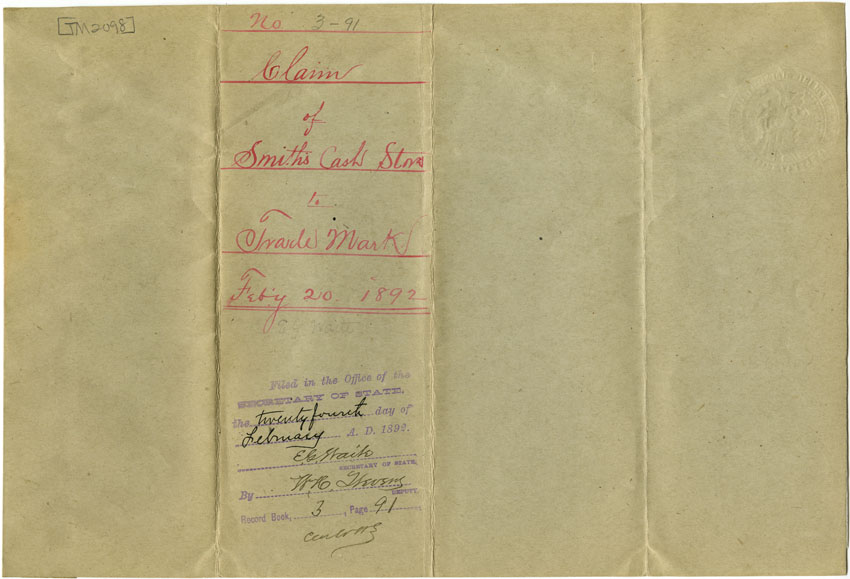 [TM2098]
No 3-91
Claim
of
Smith's Cash Store
to
Trade Mark
Feb'y 20. 1892
Filed in the Office of the
SECRETARY OF STATE,
the twentyfourth day of
February A. D. 1892.
E.G. Waite
SECRETARY OF STATE,
By W.H. Stevens
DEPUTY.
Record Book, 3, Page 91